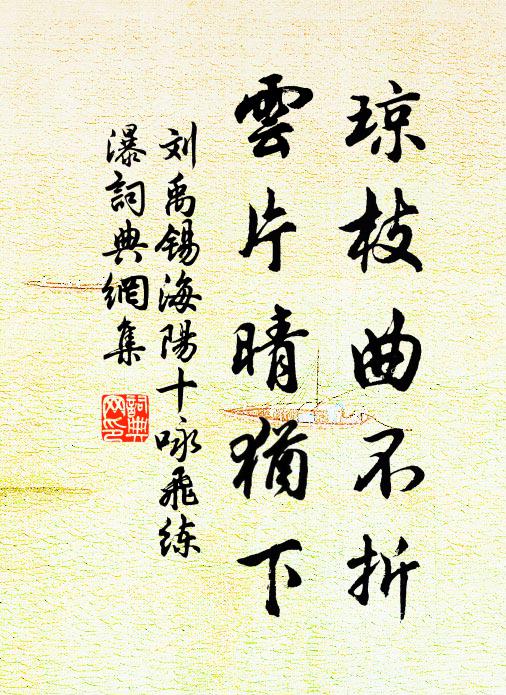 琼枝曲不折
雲片晴猶下
刘禹锡海陽十咏飛练
瀑詞典網集
詞典
网印